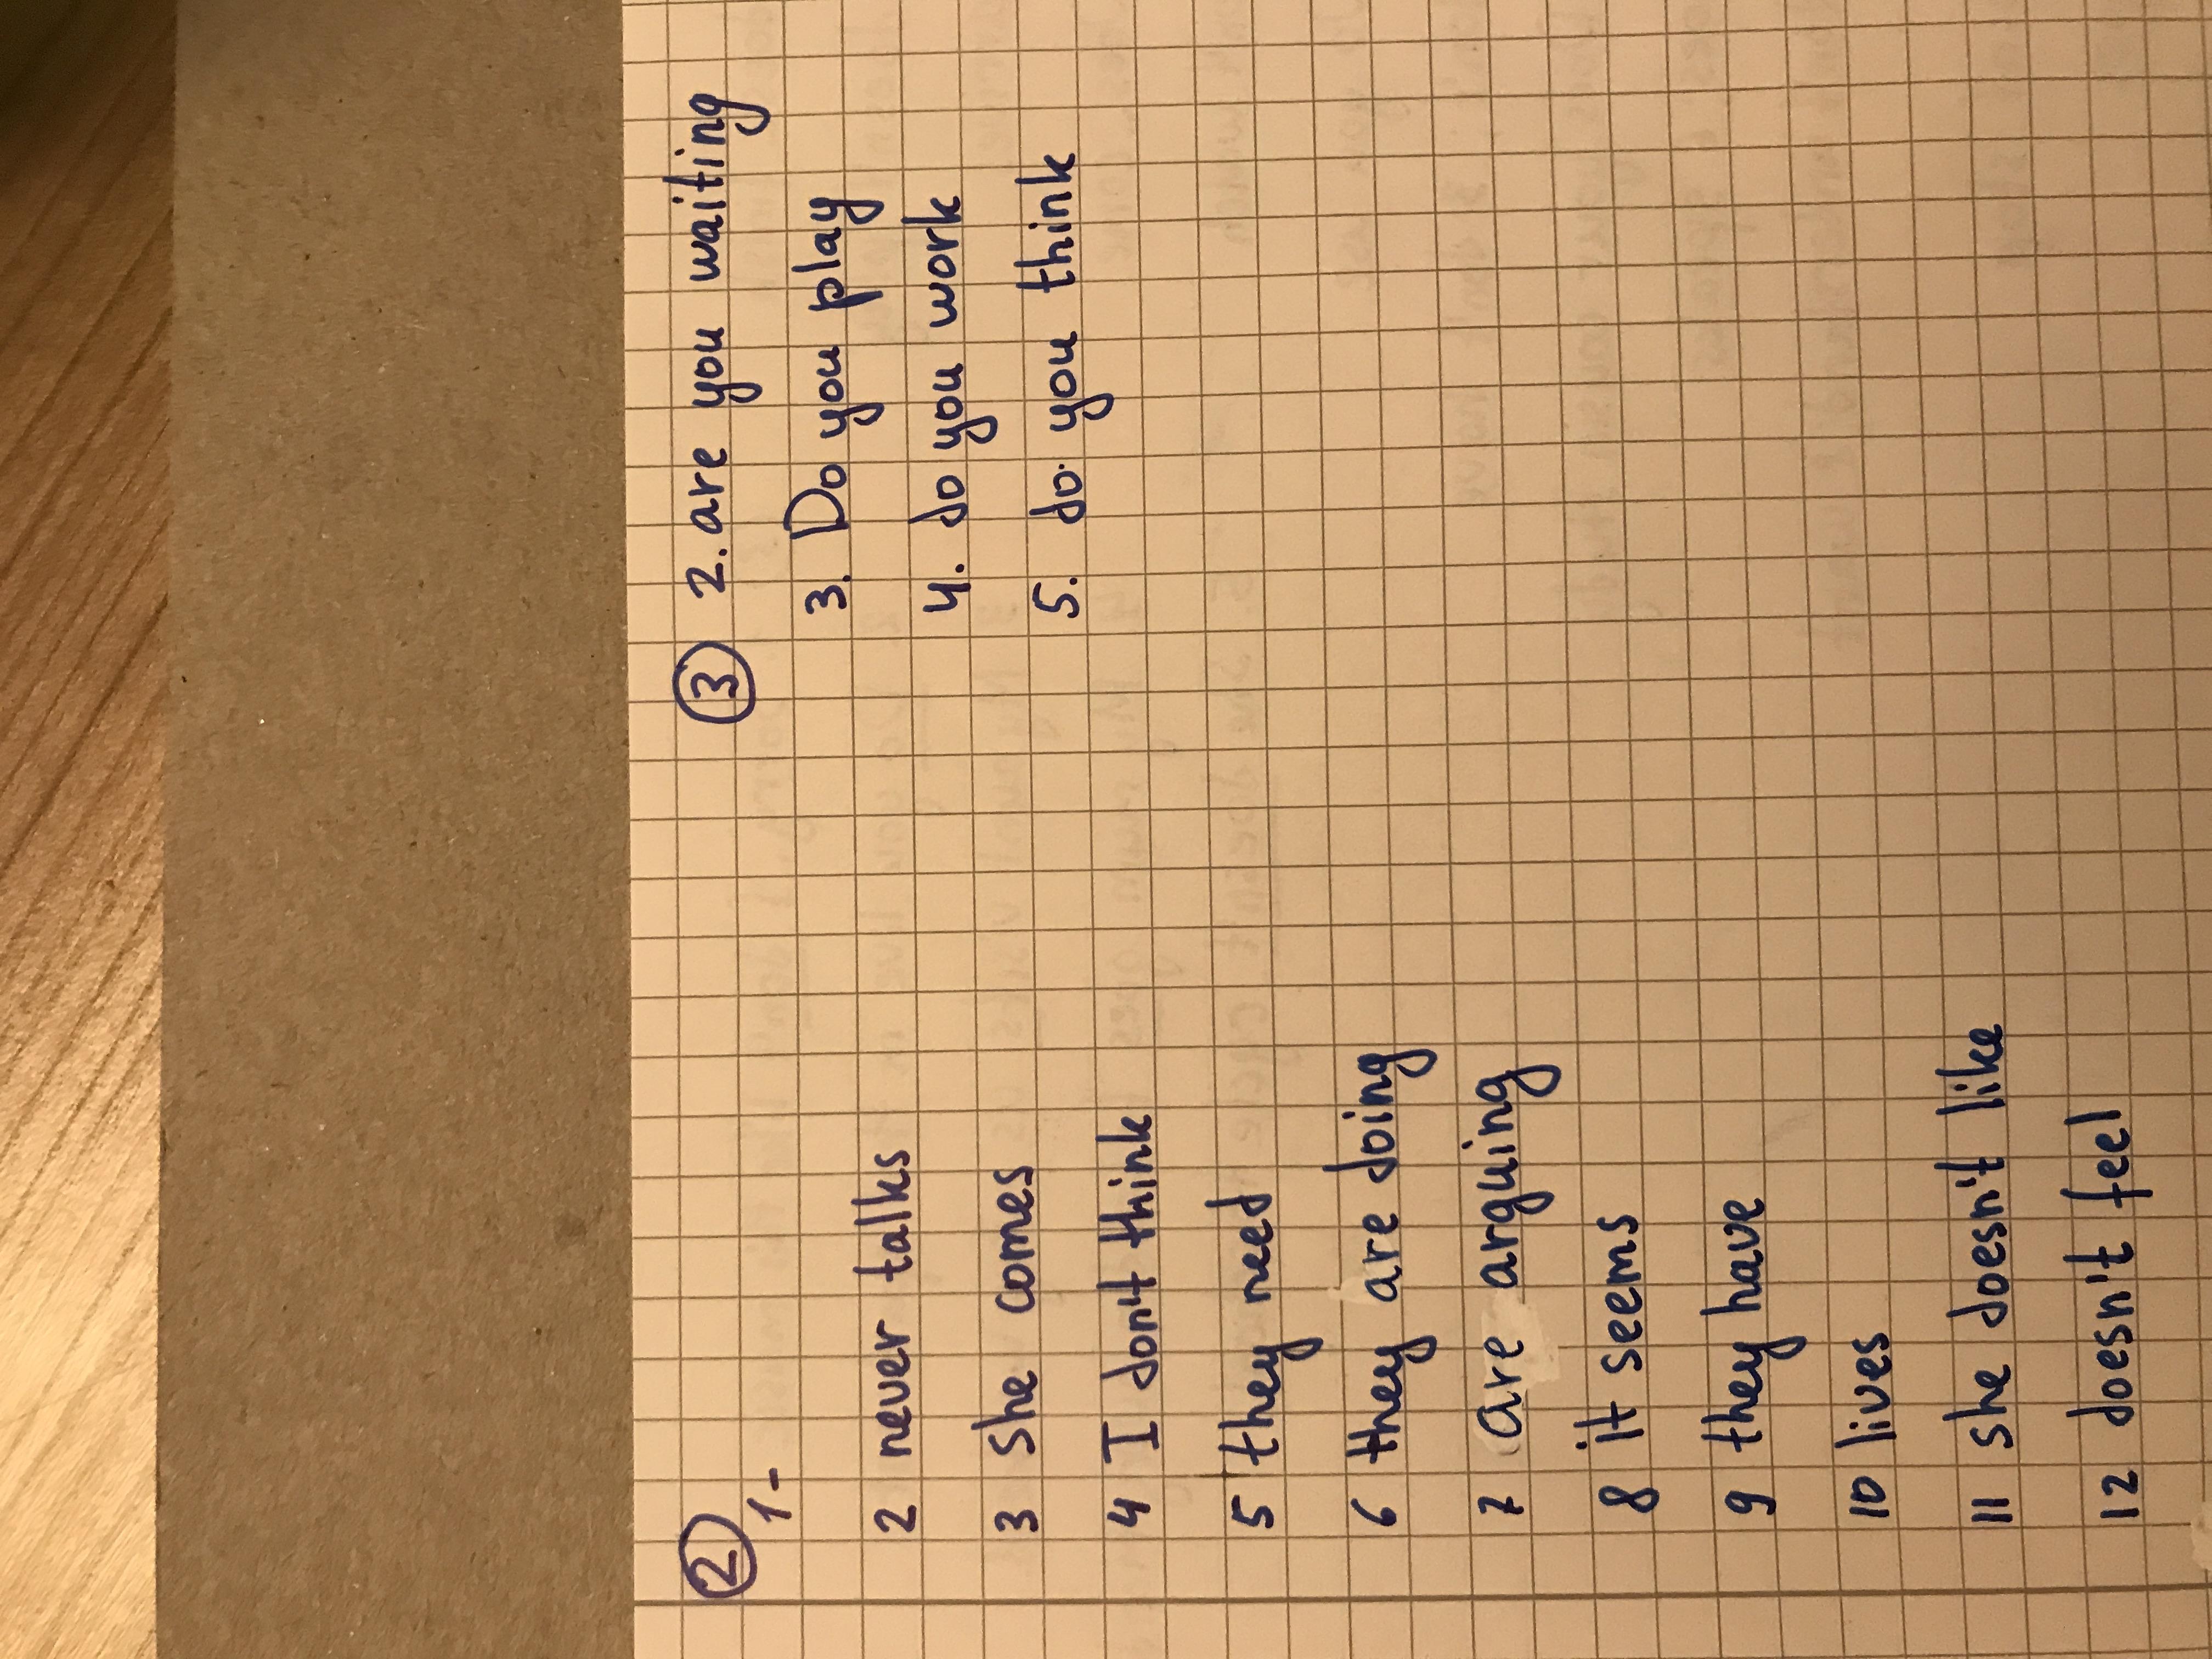 ②
1-
2 never talks
3 she comes
4 I don't think
5 they need
6 they are doing
7 are arguing
8 it seems
9 they have
10 lives
11 she doesn't like
12 doesn't feel
③ 2. are you waiting
3. Do you play
4. do you work
5. do you think